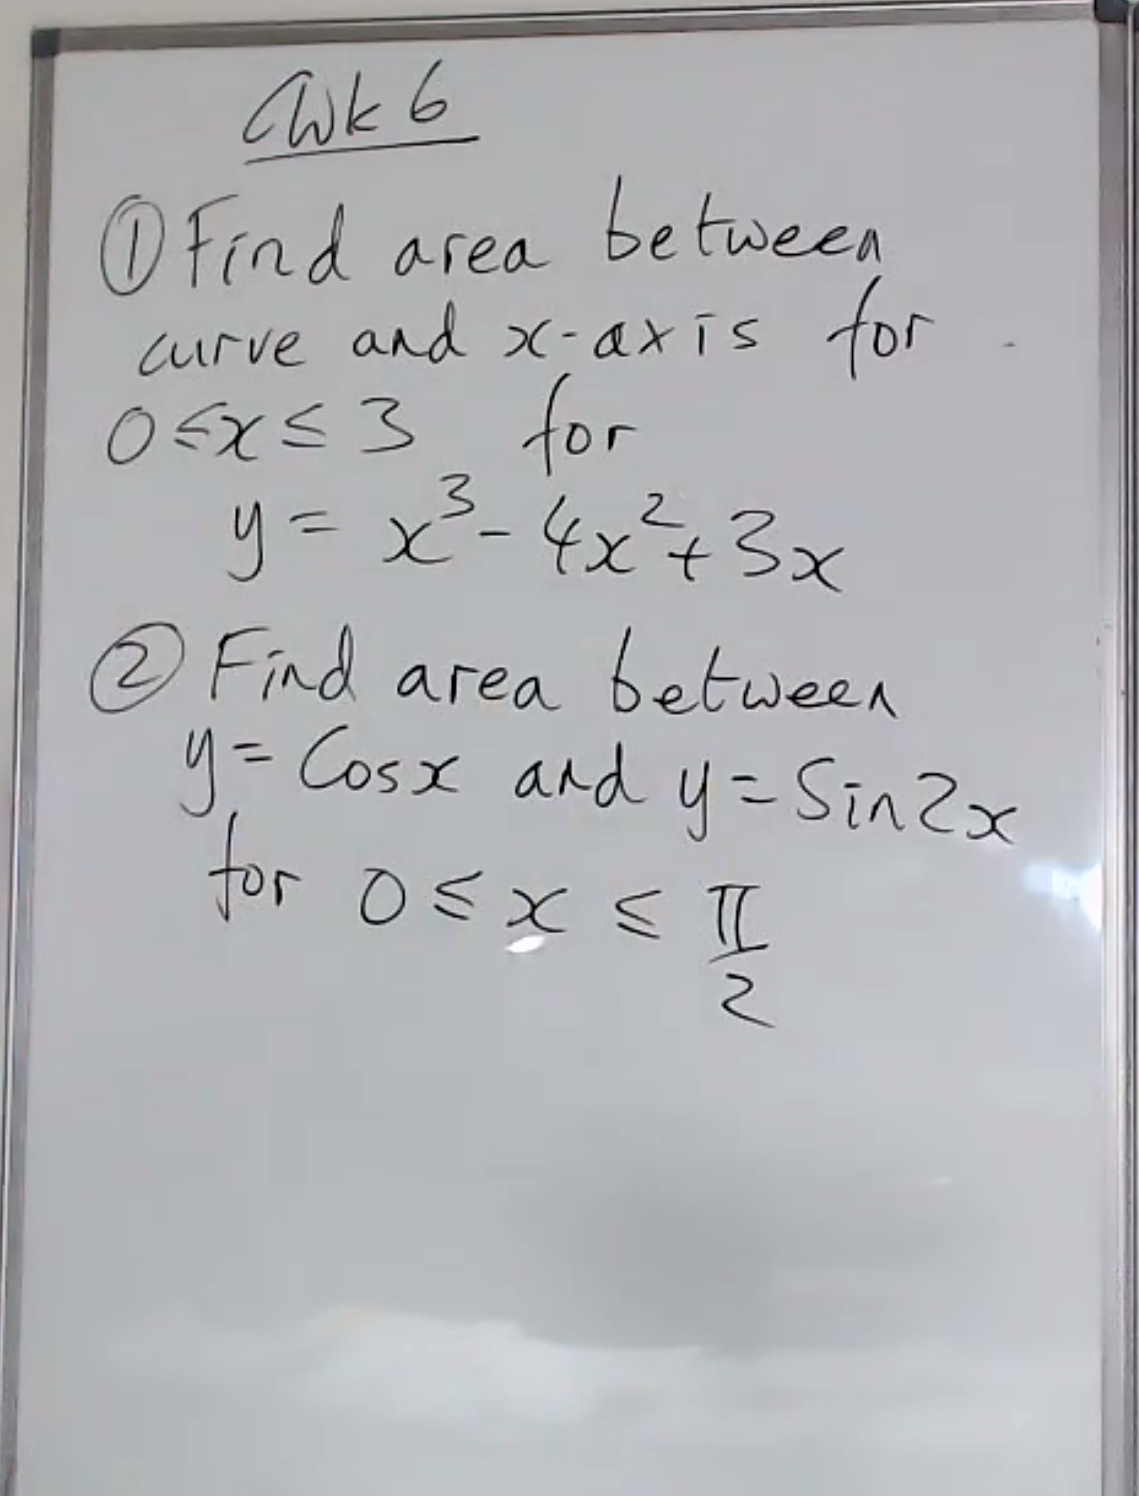 CWk 6
① Find area between
curve and x-axis for
0 ≤ x ≤ 3 for
y = x³ - 4x² + 3x
② Find area between
y = Cosx and y = Sin2x
for 0 ≤ x ≤ π/2